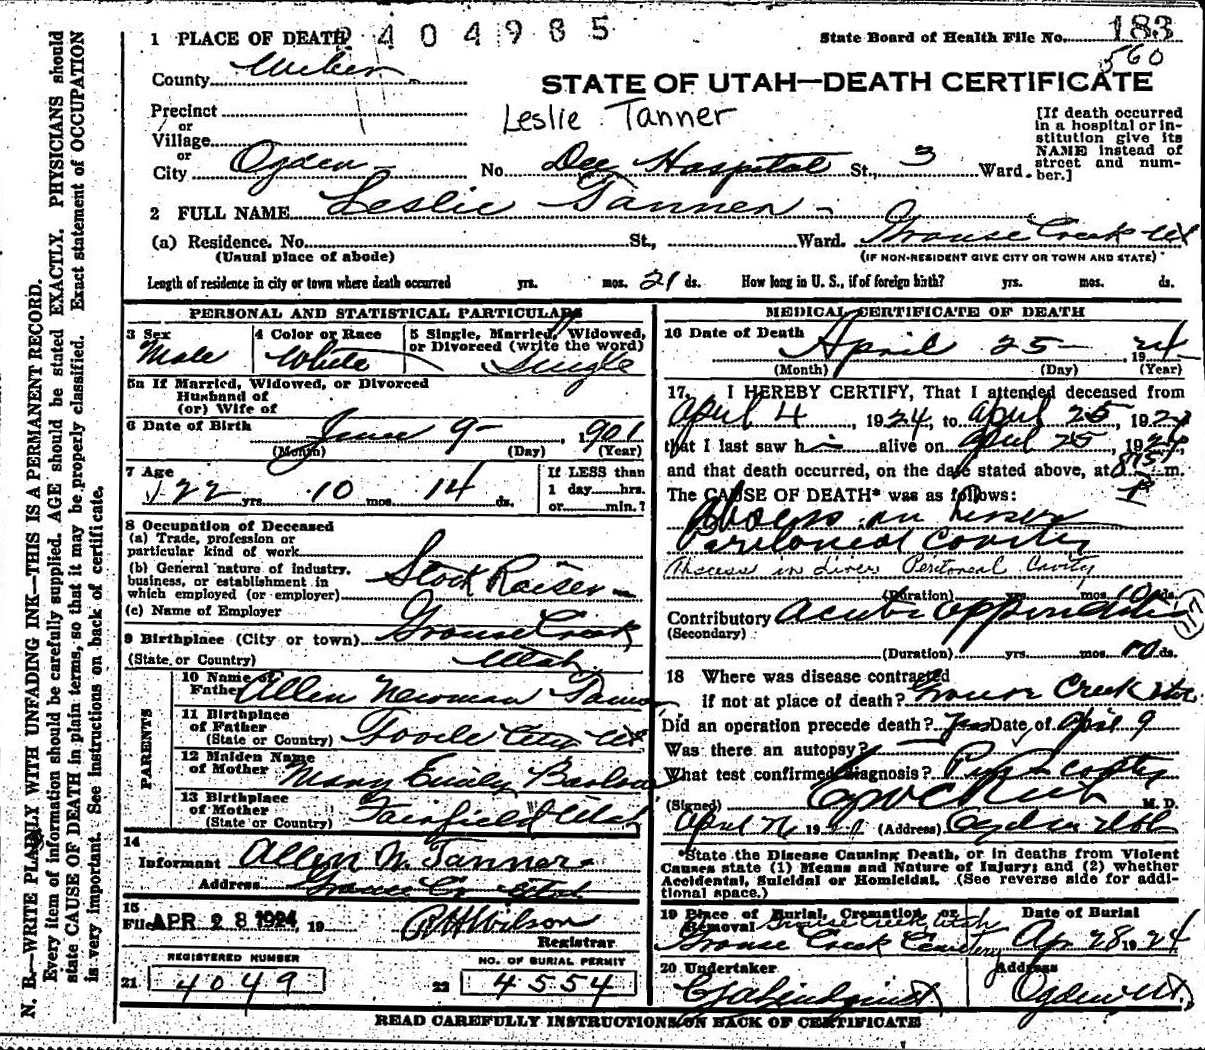 1 PLACE OF DEATH 2404985
State Board of Health File No. 183
560
County Weber
STATE OF UTAH—DEATH CERTIFICATE
Precinct
or
Village
or
City Ogden
Leslie Tanner
No. Dee Hospital St., 3 Ward.
[If death occurred
in a hospital or in-
stitution give its
NAME instead of
street and num-
ber.]
2 FULL NAME Leslie Tanner
(a) Residence. No. St., Ward. Grouse Creek Ut
(Usual place of abode)
(IF NON-RESIDENT GIVE CITY OR TOWN AND STATE)
Length of residence in city or town where death occurred yrs. mos. 21 ds. How long in U. S., if of foreign birth? yrs. mos. ds.
PERSONAL AND STATISTICAL PARTICULARS
3 Sex
Male
4 Color or Race
White
5 Single, Married, Widowed,
or Divorced (write the word)
Single
5a If Married, Widowed, or Divorced
Husband of
(or) Wife of
6 Date of Birth June 9 1901
(Month) (Day) (Year)
7 Age
22 yrs. 10 mos. 14 ds.
If LESS than
1 day hrs.
or min.?
8 Occupation of Deceased
(a) Trade, profession or
particular kind of work
(b) General nature of industry,
business, or establishment in
which employed (or employer) Stock Raiser
(c) Name of Employer
9 Birthplace (City or town) Grouse Creek
(State or Country) Utah
PARENTS
10 Name of
Father Allen Newman Tanner
11 Birthplace
of Father
(State or Country) Tooele City Ut
12 Maiden Name
of Mother Mary Emily Barlow
13 Birthplace
of Mother
(State or Country) Fairfield Utah
14
Informant Allen N. Tanner
Address Grouse Cr Utah
15
Filed APR 28 1924, 19
Wilson
Registrar
REGISTERED NUMBER
21 4049
NO. OF BURIAL PERMIT
22 4554
MEDICAL CERTIFICATE OF DEATH
16 Date of Death April 25 1924
(Month) (Day) (Year)
17. I HEREBY CERTIFY, That I attended deceased from
April 4, 1924, to April 25, 1924
that I last saw him alive on April 25, 1924,
and that death occurred, on the date stated above, at m.
The CAUSE OF DEATH* was as follows:
Abscess in liver
Peritoneal Cavity
Abscess in Liver Peritoneal Cavity
(Duration) yrs. mos. 10 ds.
Contributory acute appendicitis
(Secondary)
(Duration) yrs. mos. ds.
18 Where was disease contracted
if not at place of death? Grouse Creek Utah
Did an operation precede death? Yes Date of April 9
Was there an autopsy?
What test confirmed diagnosis?
(Signed) M. D.
April 26, 19 (Address) Ogden Utah
*State the Disease Causing Death, or in deaths from Violent
Causes state (1) Means and Nature of Injury; and (2) whether
Accidental, Suicidal or Homicidal. (See reverse side for addi-
tional space.)
19 Place of Burial, Cremation, or
Removal Grouse Creek Utah
Grouse Creek Cemetery
Date of Burial
Ap 28 1924
20 Undertaker
Lindquist
Address
Ogden Ut.
READ CAREFULLY INSTRUCTIONS ON BACK OF CERTIFICATE
N. B.—WRITE PLAINLY WITH UNFADING INK—THIS IS A PERMANENT RECORD.
Every item of information should be carefully supplied. AGE should be stated EXACTLY. PHYSICIANS should
state CAUSE OF DEATH in plain terms, so that it may be properly classified. Exact statement of OCCUPATION
is very important. See instructions on back of certificate.